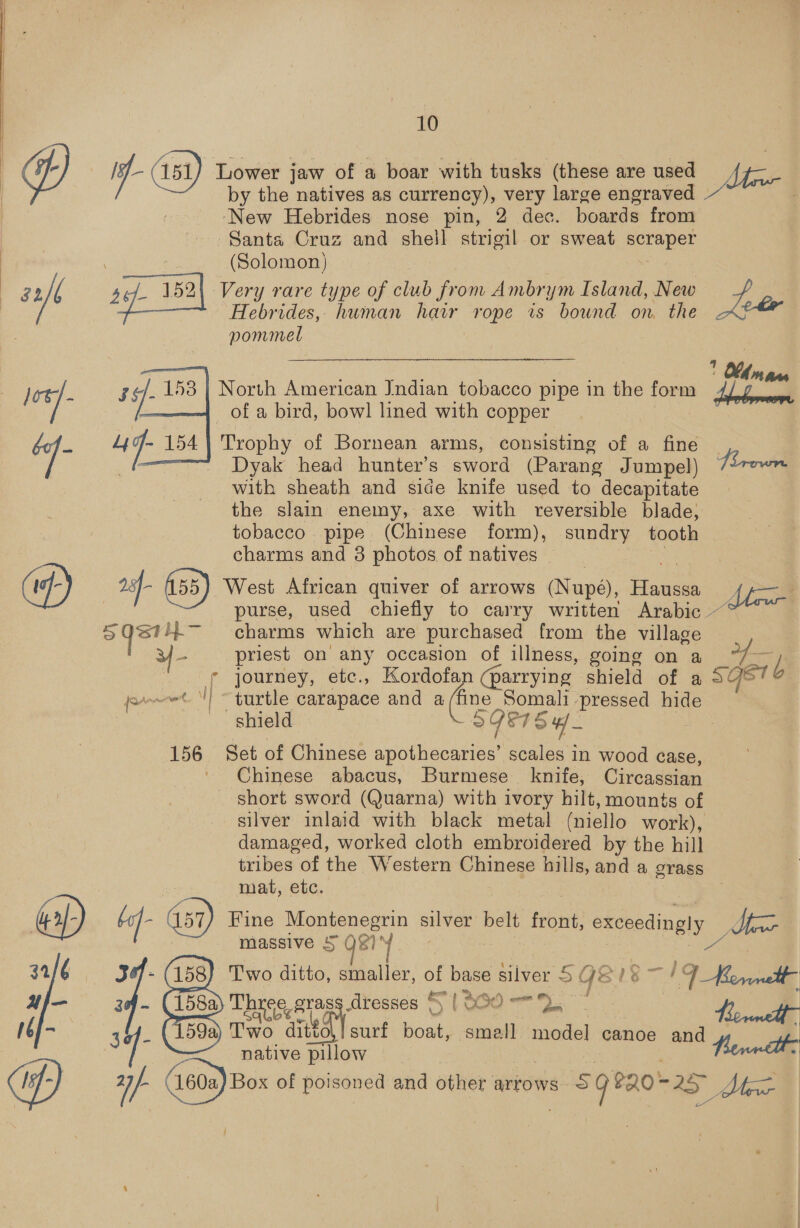 10
151 Lower jaw of a boar with tusks (these are used
by the natives as currency), very large engraved
New Hebrides nose pin, 2 dec. boards from
Santa Cruz and shell strigil or sweat scraper
(Solomon)
32/6 152 Very rare type of club from Ambrym Island, New
Hebrides, human hair rope is bound on the
pommel
Oldman
153 North American Indian tobacco pipe in the form
of a bird, bowl lined with copper
154 Trophy of Bornean arms, consisting of a fine
Dyak head hunter's sword (Parang Jumpel) Brown
with sheath and side knife used to decapitate
the slain enemy, axe with reversible blade,
tobacco pipe (Chinese form), sundry tooth
charms and 3 photos of natives
155 West African quiver of arrows (Nupé), Haussa
purse, used chiefly to carry written Arabic
59814- charms which are purchased from the village
priest on any occasion of illness, going on a
journey, etc., Kordofan (parrying shield of a 59816
turtle carapace and a fine Somali pressed hide
shield 59815
156 Set of Chinese apothecaries' scales in wood case,
Chinese abacus, Burmese knife, Circassian
short sword (Quarna) with ivory hilt, mounts of
silver inlaid with black metal (niello work),
damaged, worked cloth embroidered by the hill
tribes of the Western Chinese hills, and a grass
mat, etc.
157 Fine Montenegrin silver belt front, exceedingly
massive 59817
32/6 158 Two ditto, smaller, of base silver 59818-19 Bennett
158a Three grass dresses 51800-2 Bennett
16/- 159a Two ditto, surf boat, small model canoe and
native pillow Bennett
160a Box of poisoned and other arrows 59820-25